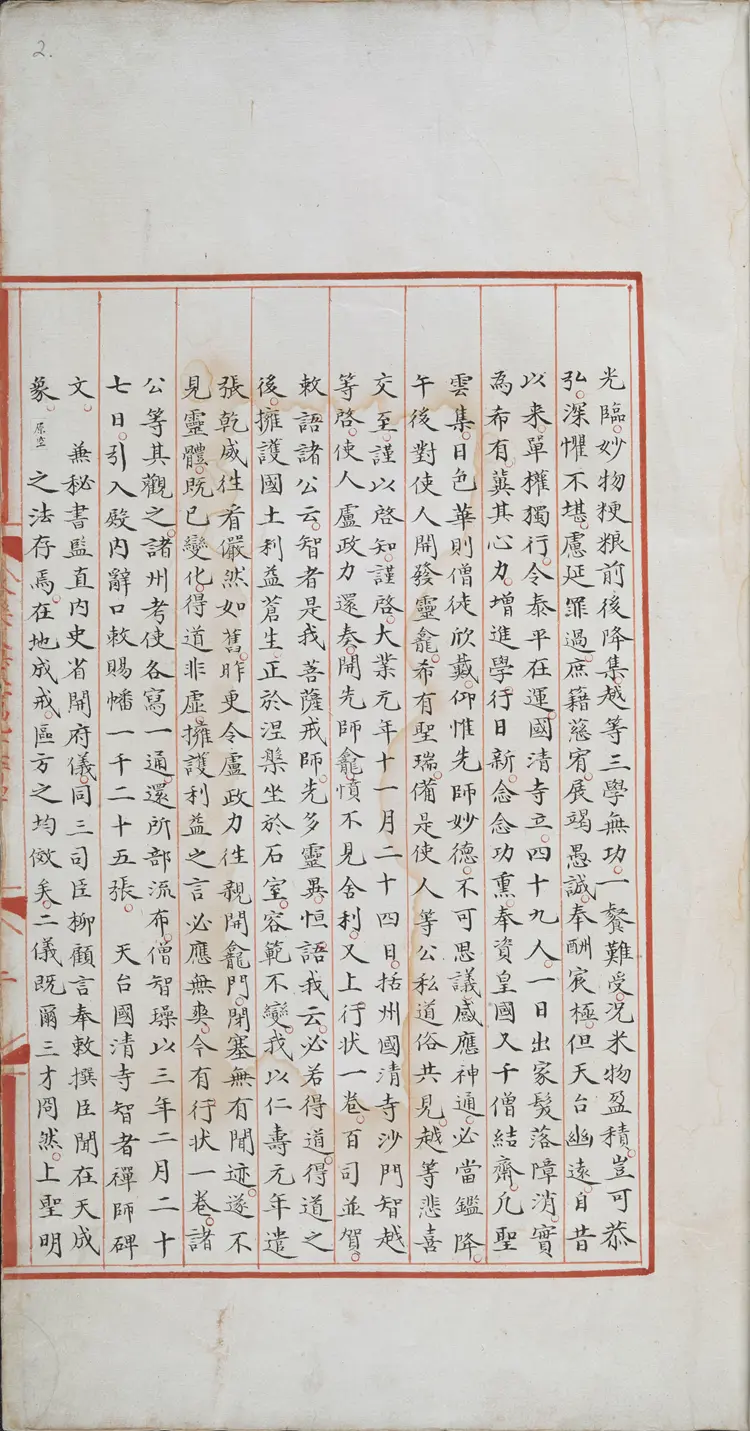 2.
光臨。妙物粳粮前後降集。越等三學無功。一餐難受。況米物盈積。豈可恭
弘。深懼不堪。慮延罪過。庶藉慈宥。展竭愚誠。奉酬宸極。但天台幽遠。自昔
以来。單權獨行。令泰平在運。國清寺立。四十九人。一日出家。髮落障消。實
為希有。冀其心力。增進學行。日新。念念功熏。奉資皇國。又千僧結齋。凡聖
雲集。日色華則。僧徒欣戴。仰惟先師妙德。不可思議。感應神通。必當鑑降。
午後對使人開發靈龕。希有聖瑞。備是使人等公私道俗共見。越等悲喜
交至。謹以啓知。謹啓。大業元年十一月二十四日。括州國清寺沙門智越
等啓。使人盧政力還奏。開先師龕墳不見舍利。又上行状一卷。百司並賀。
敕語諸公云。智者是我菩薩戒師。先多靈異。恒語我云。必若得道。得道之
後。擁護國土。利益蒼生。正於涅槃。坐於石室。容範不變。我以仁壽元年遣
張乾威往看。儼然如舊。昨更令盧政力往親開龕門。閉塞無有聞迹。遂不
見靈體。既已變化。得道非虛。擁護利益之言必應無爽。今有行状一卷。諸
公等其觀之。諸州考使各寫一通。還所部流布。僧智璪以三年二月二十
七日。引入殿内辭口敕賜幡一千二十五張。 天台國清寺智者禪師碑
文。 兼秘書監直内史省開府儀。同三司臣柳顧言奉敕撰臣聞在天成
象。原空之法存焉。在地成戒。區方之均儆矣。二儀既爾三才罔然。上聖明